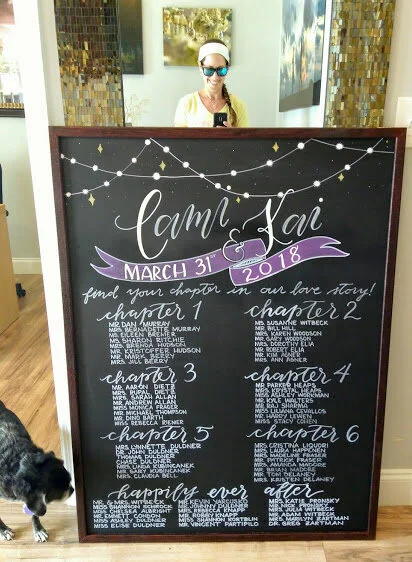 Cami & Kai
MARCH 31ST 2018
find your chapter in our love story!
chapter 1
MR. DAN MURRAY
MRS. BERNADETTE MURRAY
MS. EILEEN BREHTER
MS. SHARON RITCHIE
MRS. BRENDA HUDSON
MR. KRISTOFFER HUDSON
MR. MARK BERRY
MRS. JILL BERRY
chapter 2
MS. SUSANNE WITBECK
MR. BILL HILL
MRS. KAREN WOODSON
MR. GARY WOODSON
MRS. DOROTHY ELIA
MR. ROBERT ELIA
MR. KIM AGNER
MRS. ANN AGNER
chapter 3
MR. AARON DIETZ
MRS. PUPUL DIETZ
MRS. SARAH ALLAN
MR. ANDREW ALLAN
MISS MONICA FRAGER
MR. MICHAEL THOMPSON
MR. DINO BARTH
MISS REBECCA RIENER
chapter 4
MR. PARKER HEAPS
MRS. KRYSTAL HEAPS
MISS ASHLEY WORKMAN
MR. KYLE WALTERS
MR. RAJ SHARMA
MISS LILIANA CEVALLOS
MR. HARDY LEVENS
MISS STACY COHEN
chapter 5
MRS. LYNNETTE DULDNER
DR. JOHN DULDNER
THOMAS DULDNER
CHASE DULDNER
MRS. LINDA KUBINCANEK
MR. GARY KUBINCANEK
MRS. CLAUDIA BELL
chapter 6
MRS. CRISTINA LIQUORI
MRS. LAURA HAPPENEN
MRS. MADELINE FRASER
MR. PATRICK FRASER
MRS. AMANDA MADORE
MR. BRIAN MADORE
MR. TOM DELANEY
MRS. KRISTEN DELANEY
happily ever after
MR. & MRS. WITBECK
MISS SHANNON SCHROCK
MISS CHELSEA ALBRIGHT
MR. EMMETT CONDON
MISS ASHLEY DULDNER
MISS ELISE DULDNER
MR. KEVIN YARUSKO
MR. JOHNNY DULDNER
MRS. REBECCA KNAPP
MR. ROBBY KNAPP
MISS SHANNON KORTBLIN
MR. VINCENT PARTIPILO
MRS. KATIE PRONSKY
MR. NICK PRONSKY
MR. ADAM WITBECK
MRS. MARILYN ZARTMAN
DR. GREG ZARTMAN